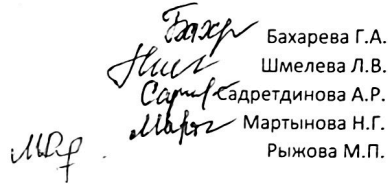 Бахарева Г.А.
Шмелева Л.В.
Садретдинова А.Р.
Мартынова Н.Г.
Рыжова М.П.